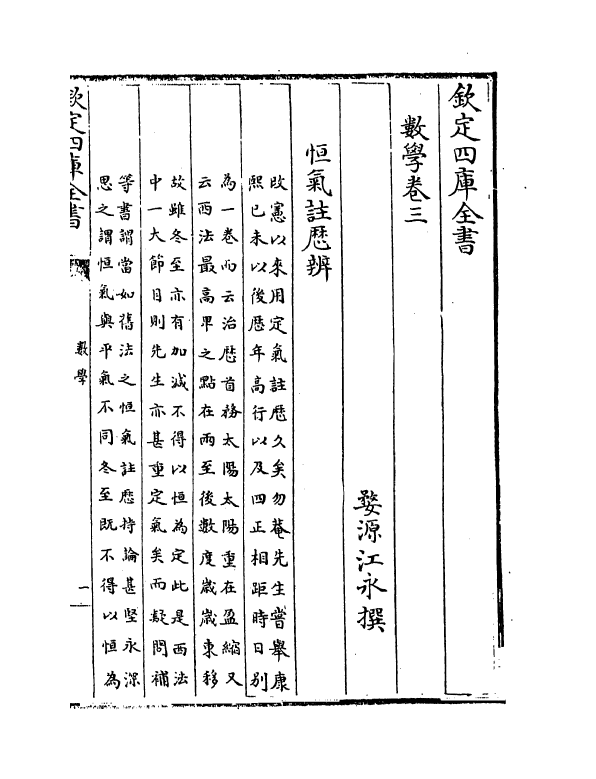 欽定四庫全書
數學卷三
婺源江永撰
恒氣註厯辨
改憲以來用定氣註厯久矣勿菴先生嘗舉康
熙已未以後厯年高行以及四正相距時日別
為一卷而云治厯首務太陽太陽重在盈縮又
云西法最高卑之點在兩至後數度歲歲東移
故雖冬至亦有加減不得以恒為定此是西法
中一大節目則先生亦甚重定氣矣而疑問補
等書謂當如舊法之恒氣註厯持論甚堅永深
思之謂恒氣與平氣不同冬至既不得以恒為
欽定四庫全書
數學
一